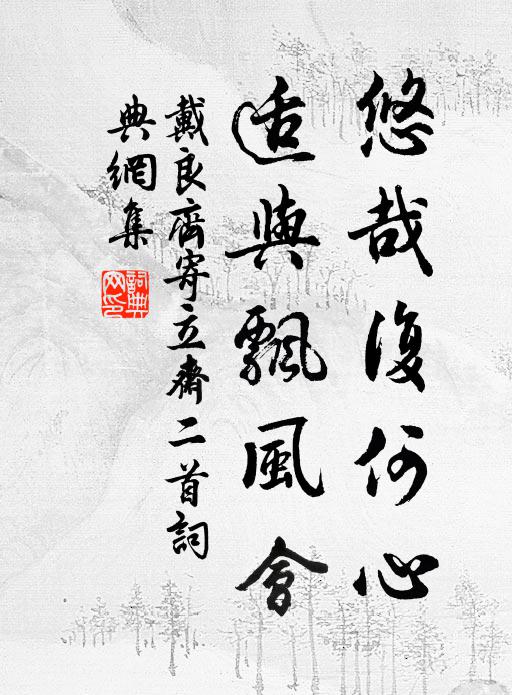 悠哉復何心
适與飄風會
戴良齊寄立齋二首詞
典網集
詞典网印